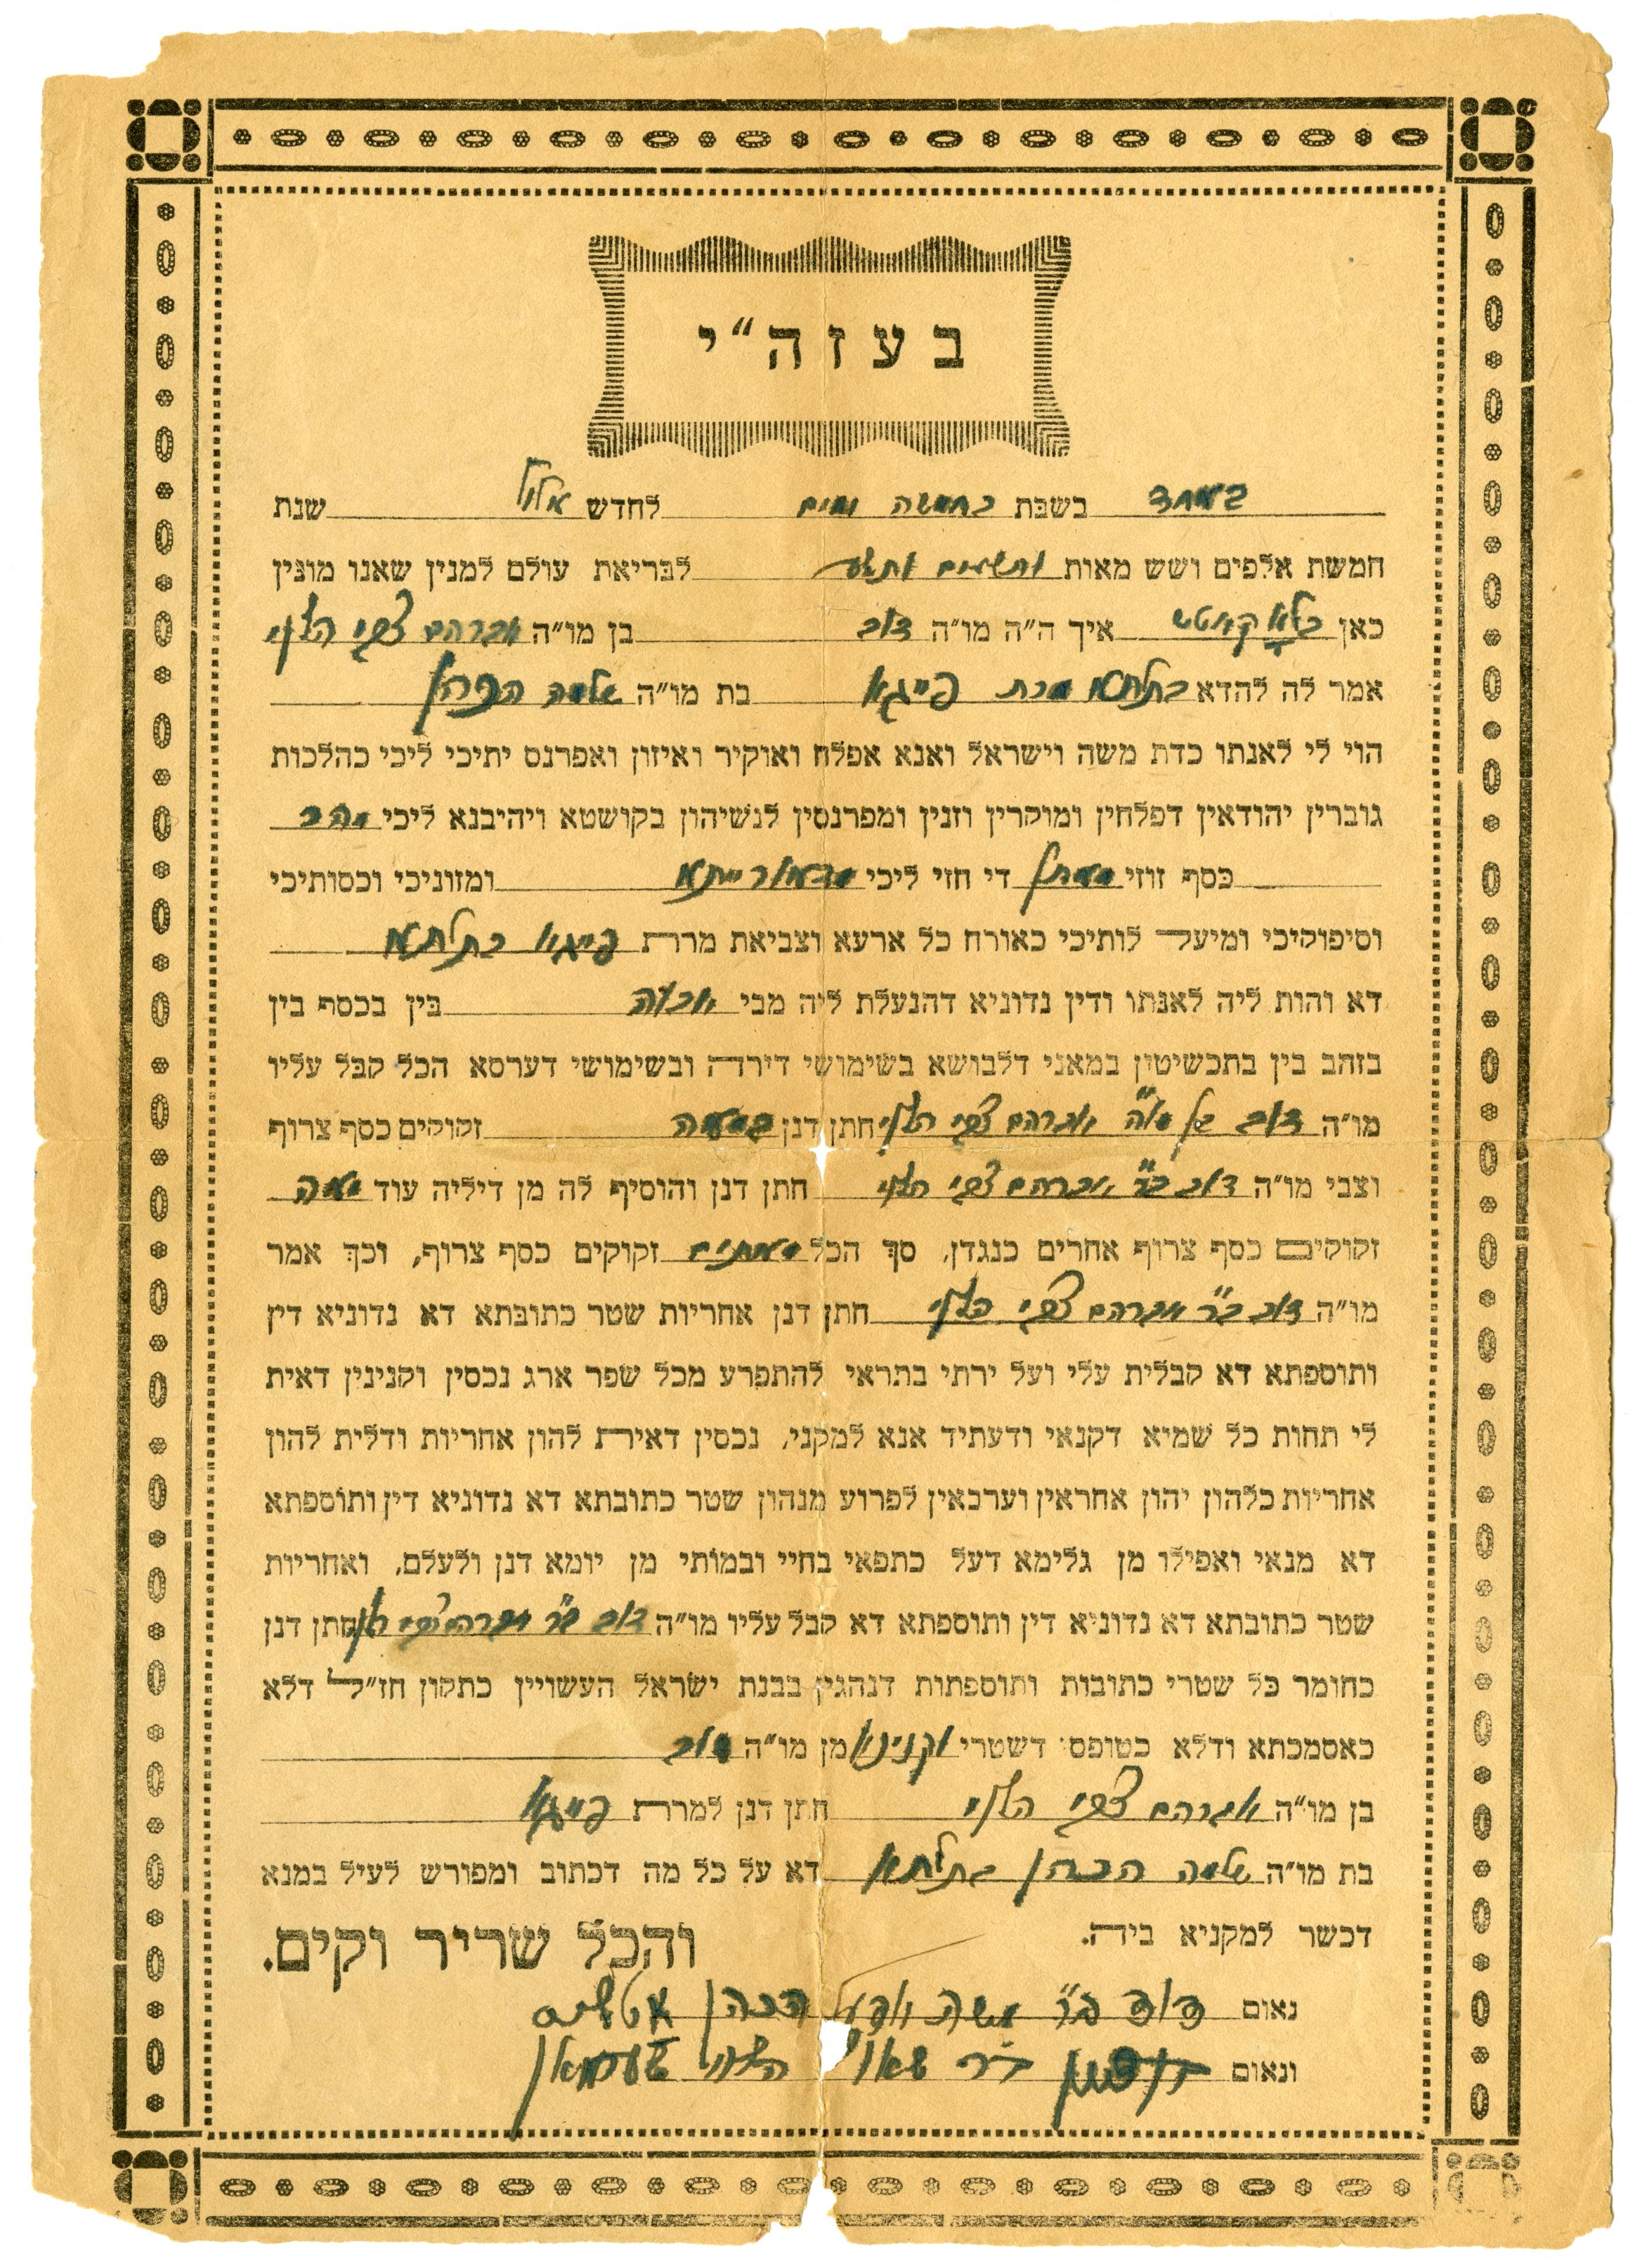 בעזה״י
באחד בשבת בחמשה ימים לחדש אלול שנת
חמשת אלפים ושש מאות ותשעים ותשע לבריאת עולם למנין שאנו מונין
כאן איך ה״ה מו״ה דוב בן מו״ה אברהם צבי הלוי
אמר לה להדא בתולתא מרת פייגא בת מו״ה שלמה הכהן
הוי לי לאנתו כדת משה וישראל ואנא אפלח ואוקיר ואיזון ואפרנס יתיכי ליכי כהלכות
גוברין יהודאין דפלחין ומוקרין וזנין ומפרנסין לנשיהון בקושטא ויהיבנא ליכי מהר
כסף זוזי מאתן די חזי ליכי מדאורייתא ומזוניכי וכסותיכי
וסיפוקיכי ומיעל לותיכי כאורח כל ארעא וצביאת מרת פייגא בתולתא
דא והות ליה לאנתו ודין נדוניא דהנעלת ליה מבי אבוה בין בכסף בין
בזהב בין בתכשיטין במאני דלבושא בשימושי דירה ובשימושי דערסא הכל קבל עליו
מו״ה דוב בן מו״ה אברהם צבי הלוי חתן דנן במאה זקוקים כסף צרוף
וצבי מו״ה דוב ב״ר אברהם צבי הלוי חתן דנן והוסיף לה מן דיליה עוד מאה
זקוקים כסף צרוף אחרים כנגדן, סך הכל מאתים זקוקים כסף צרוף, וכך אמר
מו״ה דוב ב״ר אברהם צבי הלוי חתן דנן אחריות שטר כתובתא דא נדוניא דין
ותוספתא דא קבלית עלי ועל ירתי בתראי להתפרע מכל שפר ארג נכסין וקנינין דאית
לי תחות כל שמיא דקנאי ודעתיד אנא למקני, נכסין דאית להון אחריות ודלית להון
אחריות כלהון יהון אחראין וערבאין לפרוע מנהון שטר כתובתא דא נדוניא דין ותוספתא
דא מנאי ואפילו מן גלימא דעל כתפאי בחיי ובמותי מן יומא דנן ולעלם, ואחריות
שטר כתובתא דא נדוניא דין ותוספתא דא קבל עליו מו״ה דוב ב״ר אברהם צבי הלוי חתן דנן
כחומר כל שטרי כתובות ותוספתות דנהגין בבנת ישראל העשויין כתקון חז״ל דלא
כאסמכתא ודלא כטופסי דשטרי וקנינא מן מו״ה דוב
בן מו״ה אברהם צבי הלוי חתן דנן למרת פייגא
בת מו״ה שלמה הכהן בתולתא דא על כל מה דכתוב ומפורש לעיל במנא
דכשר למקניא ביה. והכל שריר וקים.
נאום דוד ב״ר משה הכהן
ונאום ב״ר שאול הלוי